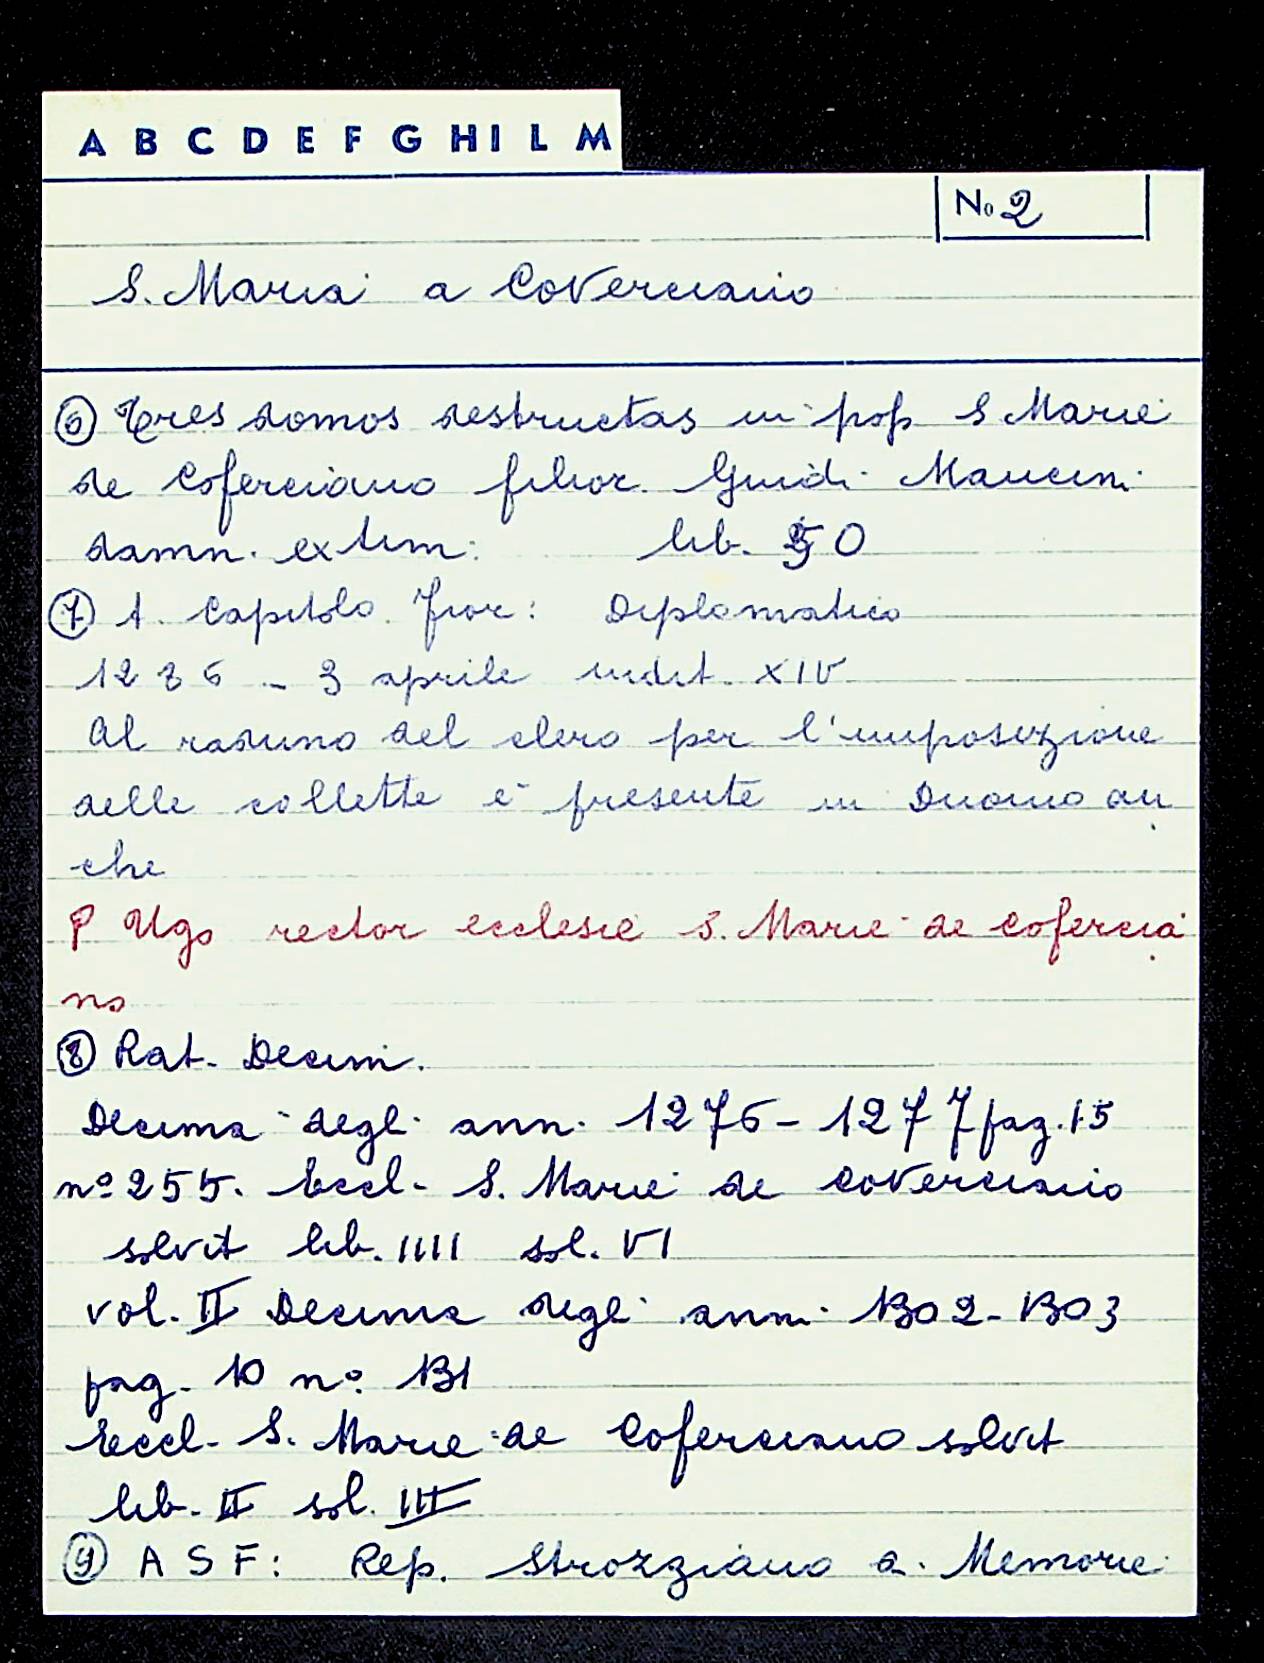 A B C D E F G H I L M
No 2
S. Maria a Coverciano
⑥ Tres domos destructas in pop S Marie
de Coferciano filior. Guidi Mancini
damn. extim: lib. 50
⑦ A. Capitolo Fior: Diplomatico
1286 - 3 aprile indit. XIV
Al raduno del clero per l'imposizione
delle collette è presente in Duomo an
che
P Ugo rector ecclesie S. Marie de Cofercia
no
⑧ Rat. Decim.
Decima degli ann. 1276-1277 pag. 15
nº 255. Eccl. S. Marie de Coverciano
solvit lib. IIII sol. VI
vol. II Decima degli anni 1302-1303
pag. 10 nº. 131
Eccl. S. Marie de Coferciano solvit
lib. II sol. III
⑨ A S F: Rep. Strozziano a. Memorie